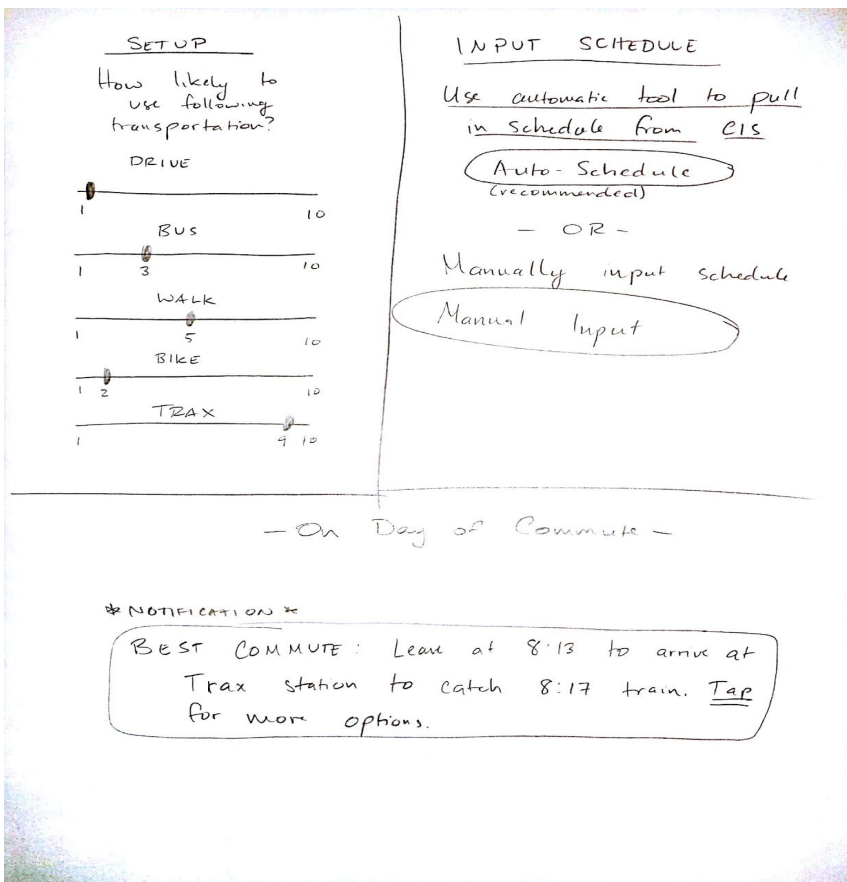 SETUP
How likely to
use following
transportation?
DRIVE
1 10
BUS
1 3 10
WALK
1 5 10
BIKE
1 2 10
TRAX
1 9 10
INPUT SCHEDULE
Use automatic tool to pull
in schedule from CIS
Auto-Schedule
(recommended)
- OR -
Manually input schedule
Manual Input
- On Day of Commute -
* NOTIFICATION *
BEST COMMUTE: Leave at 8:13 to arrive at
Trax station to catch 8:17 train. Tap
for more options.